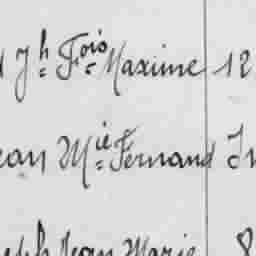 Jh Fois Maxime 12
ean Mie Fernand
eph Jean Marie 8